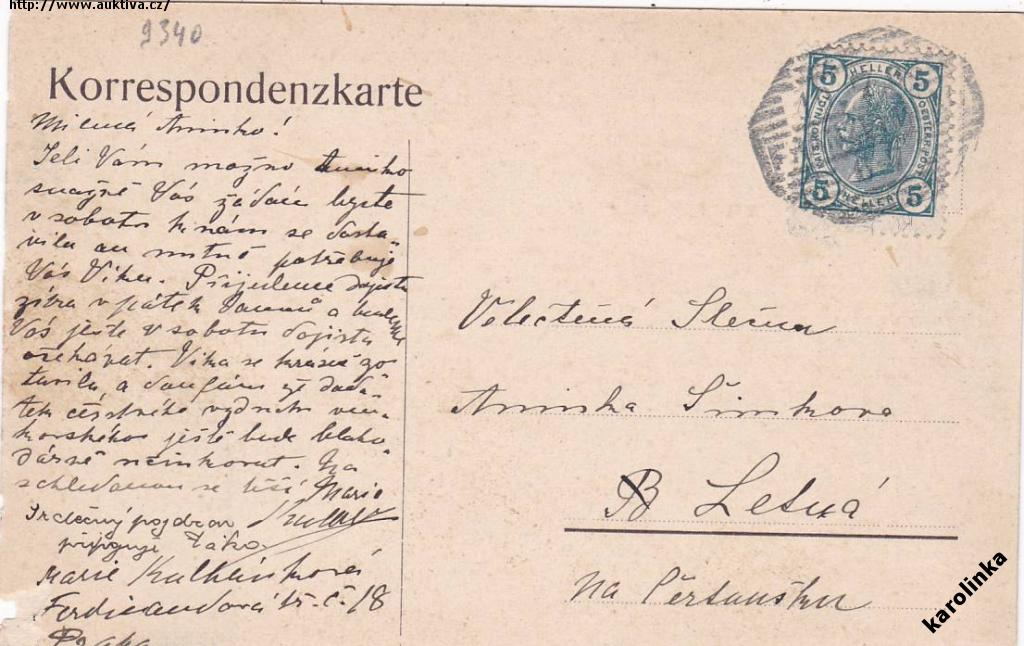 http://www.auktiva.cz/
9340
Korrespondenzkarte
Milená Aninko!
Jeli Vám možno Aninko
snažně Vás žádám byste
v sobotu k nám se dosta-
vila an nutně potřebuje
Vás Vika. Přijedeme dojista
zítra v pátek domů a budeme
Vás ještě v sobotu dojista
očekávat. Vika se krásně zo-
tavila a doufám že
ještě bude blaho
dárně účinkovat. Na
schledanou se těší Marie
Srdečný pozdrav
připojuje také
Marie
Ferdinandová tř. č. 18
Praha
5 HELLER 5
5 HELLER 5
Velectěná Slečna
Aninka Šimkova
B Letná
na
karolinka